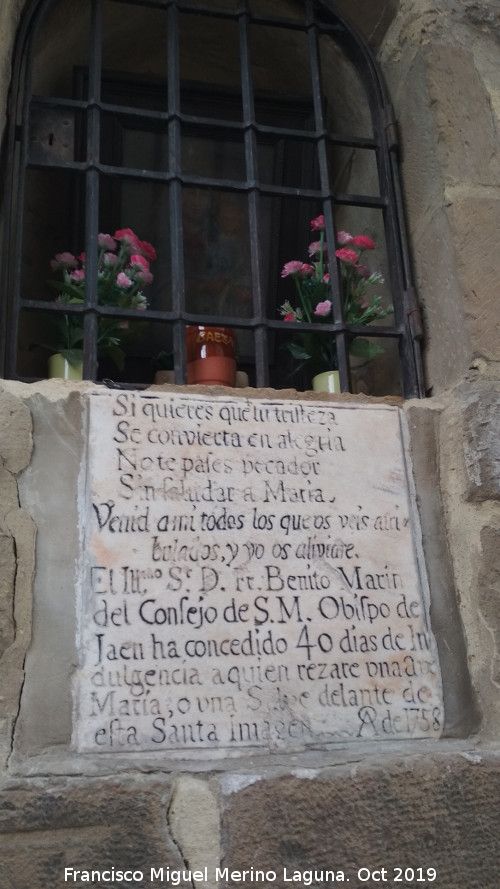 BAEZA
Si quieres que tu tristeza
Se convierta en alegria
No te pases pecador
Sin saludar a Maria.
Venid a mi todos los que os veis atri-
bulados, y yo os aliviare.
El Ill.mo Sr. D. Fr. Benito Marin
del Consejo de S. M. Obispo de
Jaen ha concedido 40 dias de In
dulgencia a quien rezare una Ave
Maria, o una Salve delante de
esta Santa Imagen. A de 1758
Francisco Miguel Merino Laguna. Oct 2019